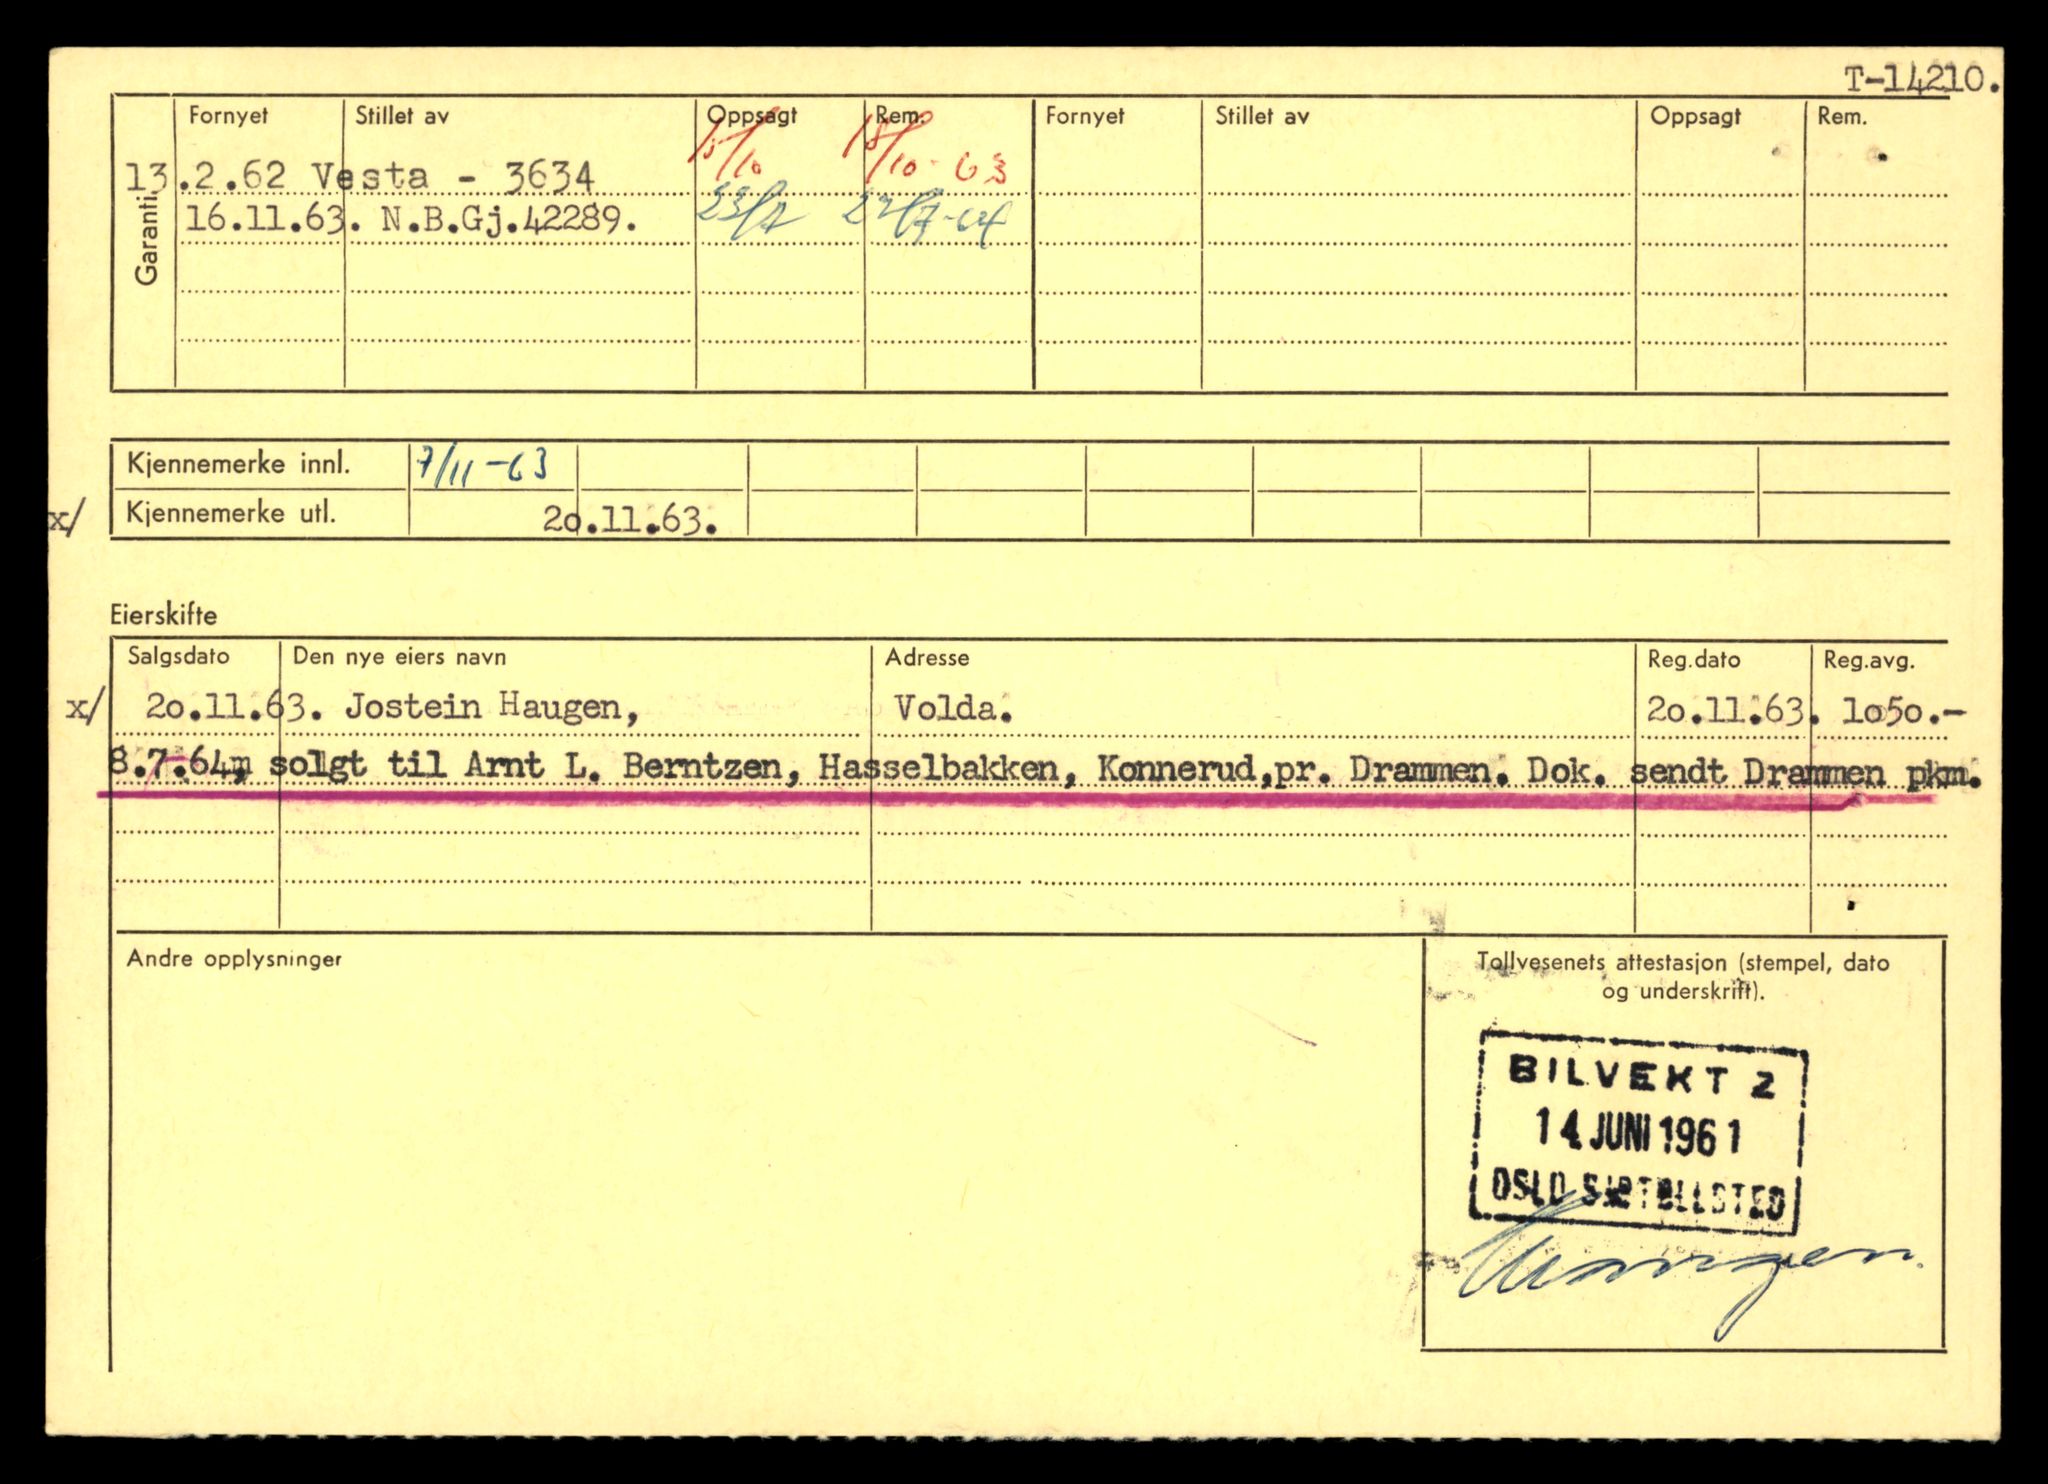 T-14210.
Fornyet Stillet av Oppsagt Rem. Fornyet Stillet av Oppsagt Rem.
Garanti
13.2.62 Vesta - 3634 /10 /10-63
16.11.63. N.B.Gj.42289. 23/7 27/7-64
Kjennemerke innl. 7/11-63
x/ Kjennemerke utl. 20.11.63.
Eierskifte
Salgsdato Den nye eiers navn Adresse Reg.dato Reg.avg.
x/ 20.11.63. Jostein Haugen, Volda. 20.11.63. 1050.-
8.7.64, solgt til Arnt L. Berntzen, Hasselbakken, Konnerud,pr. Drammen. Dok. sendt Drammen pkm.
Andre opplysninger
Tollvesenets attestasjon (stempel, dato
og underskrift).
BILVEKT 2
14 JUNI 1961
OSLO SJØTOLLSTED